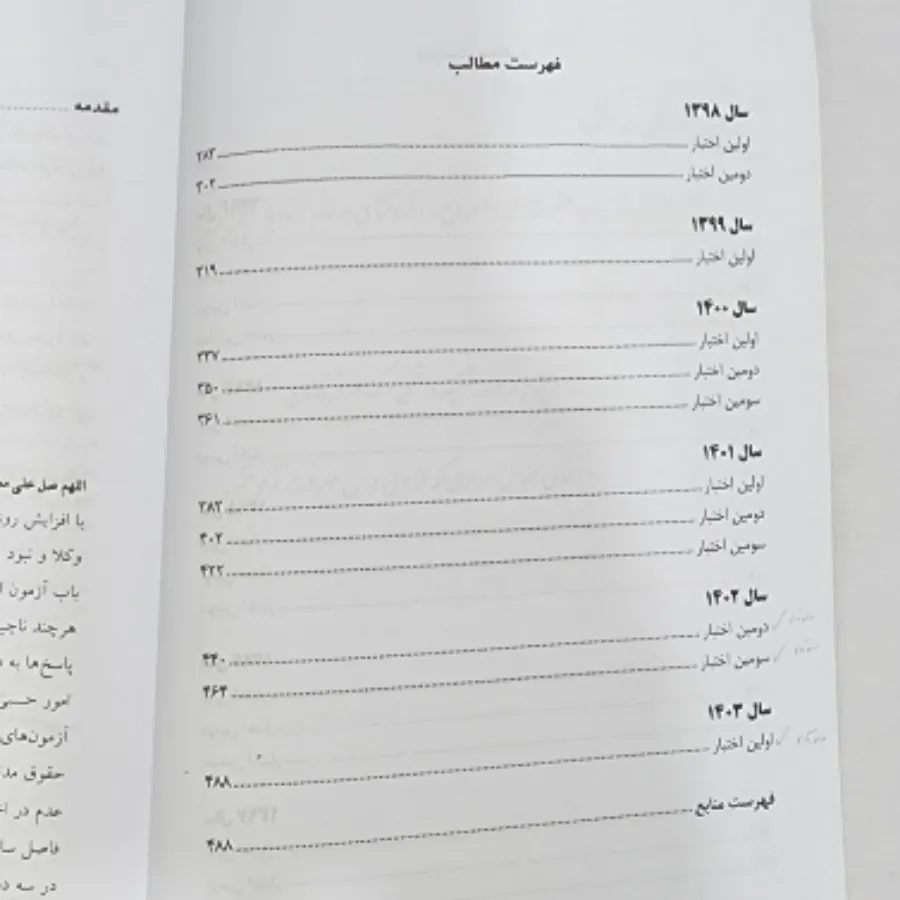 فهرست مطالب
سال ۱۳۹۸
اولین اختبار ۲۸۳
دومین اختبار ۳۰۲
سال ۱۳۹۹
اولین اختبار ۳۱۹
سال ۱۴۰۰
اولین اختبار ۳۳۷
دومین اختبار ۳۵۰
سومین اختبار ۳۶۱
سال ۱۴۰۱
اولین اختبار ۳۸۳
دومین اختبار ۴۰۲
سومین اختبار ۴۲۲
سال ۱۴۰۲
دومین اختبار ۴۴۰
سومین اختبار ۴۶۴
سال ۱۴۰۳
اولین اختبار ۴۸۸
فهرست منابع ۴۸۸
مقدمه
اللهم صل علی
با افزایش
وکلا و نبود
باب آزمون
هرچند
پاسخ‌ها به
امور
آزمون‌های
حقوق
عدم در
فاصل
در سه